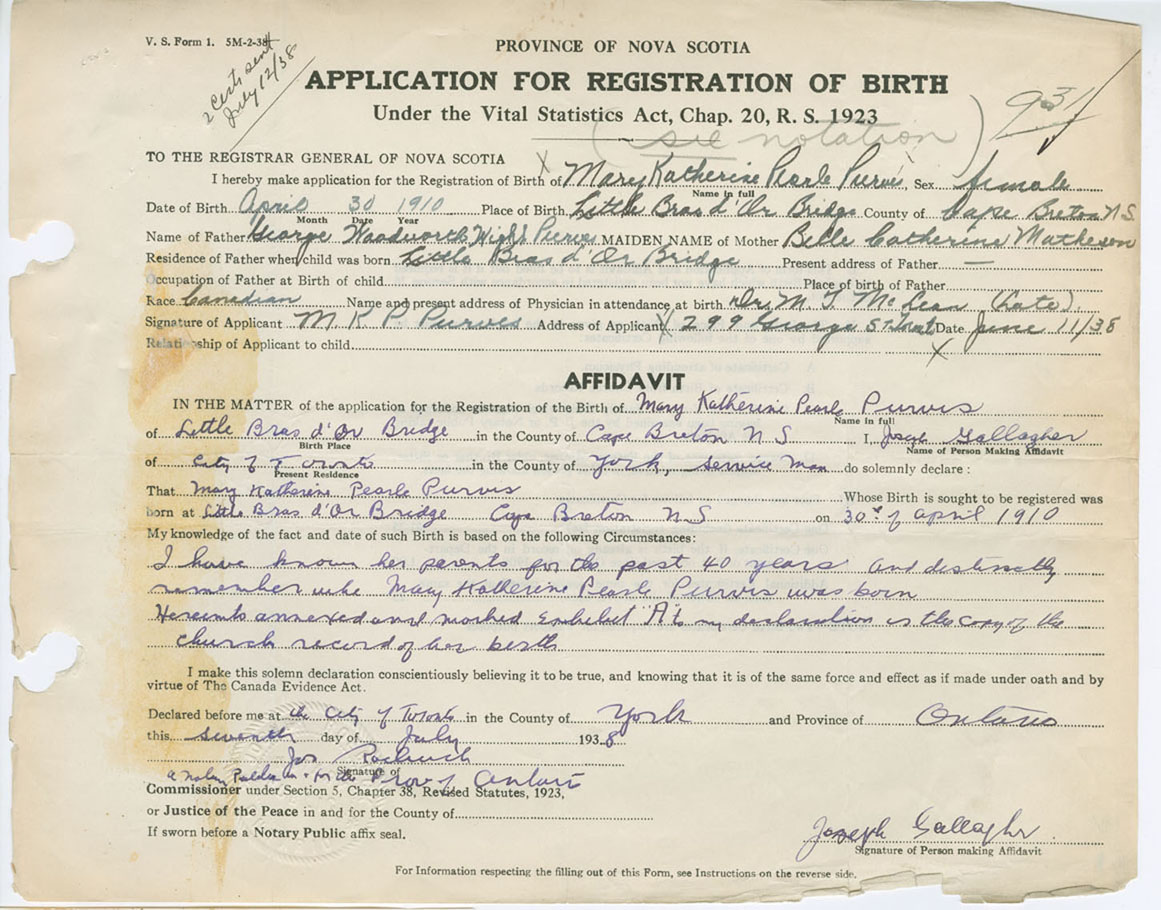 V. S. Form 1. 5M-2-38
2 Certs sent
July 12/38
PROVINCE OF NOVA SCOTIA
APPLICATION FOR REGISTRATION OF BIRTH
Under the Vital Statistics Act, Chap. 20, R. S. 1923
(see notation)
931
TO THE REGISTRAR GENERAL OF NOVA SCOTIA
I hereby make application for the Registration of Birth of Mary Katherine Pearle Purvis, Sex female
Name in full
Date of Birth April 30 1910 Place of Birth Little Bras d'Or Bridge County of Cape Breton N.S.
Month Date Year
Name of Father George Woodworth Wight Purves MAIDEN NAME of Mother Belle Catherine Matheson
Residence of Father when child was born Little Bras d'Or Bridge Present address of Father —
Occupation of Father at Birth of child Place of birth of Father
Race Canadian Name and present address of Physician in attendance at birth Dr. M. T. McLean (Late)
Signature of Applicant M K P. Purves Address of Applicant 299 George St Toronto Date June 11/38
Relationship of Applicant to child
AFFIDAVIT
IN THE MATTER of the application for the Registration of the Birth of Mary Katherine Pearle Purvis
Name in full
of Little Bras d'Or Bridge in the County of Cape Breton N S I, Joseph Gallagher
Birth Place Name of Person Making Affidavit
of City of Toronto in the County of York, Service Man do solemnly declare :
Present Residence
That Mary Katherine Pearle Purvis Whose Birth is sought to be registered was
born at Little Bras d'Or Bridge Cape Breton N S on 30th of april 1910
My knowledge of the fact and date of such Birth is based on the following Circumstances:
I have known her parents for the past 40 years and distinctly
remember when Mary Katherine Pearle Purvis was born
Hereunto annexed and marked Exhibit "A" to my declaration is the copy of the
church record of her birth
I make this solemn declaration conscientiously believing it to be true, and knowing that it is of the same force and effect as if made under oath and by
virtue of The Canada Evidence Act.
Declared before me at the City of Toronto in the County of York and Province of Ontario
this seventh day of July 1938
Jos
Signature of
a Notary Public in & for the Prov of Ontario
Commissioner under Section 5, Chapter 38, Revised Statutes, 1923,
or Justice of the Peace in and for the County of
If sworn before a Notary Public affix seal.
Joseph Gallagher
Signature of Person making Affidavit
For Information respecting the filling out of this Form, see Instructions on the reverse side.